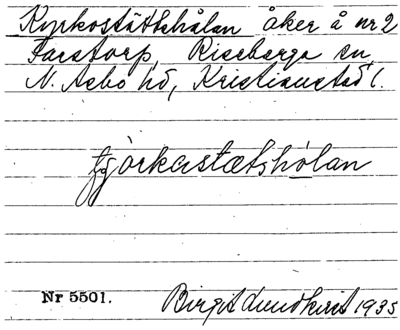 Kyrkostättshålan åker å nr 2
Farstorp, Riseberga sn,
N. Åsbo hd, Kristianstad l.
tjörkastætshólan
Nr 5501.
Birgit Lundkvist 1935